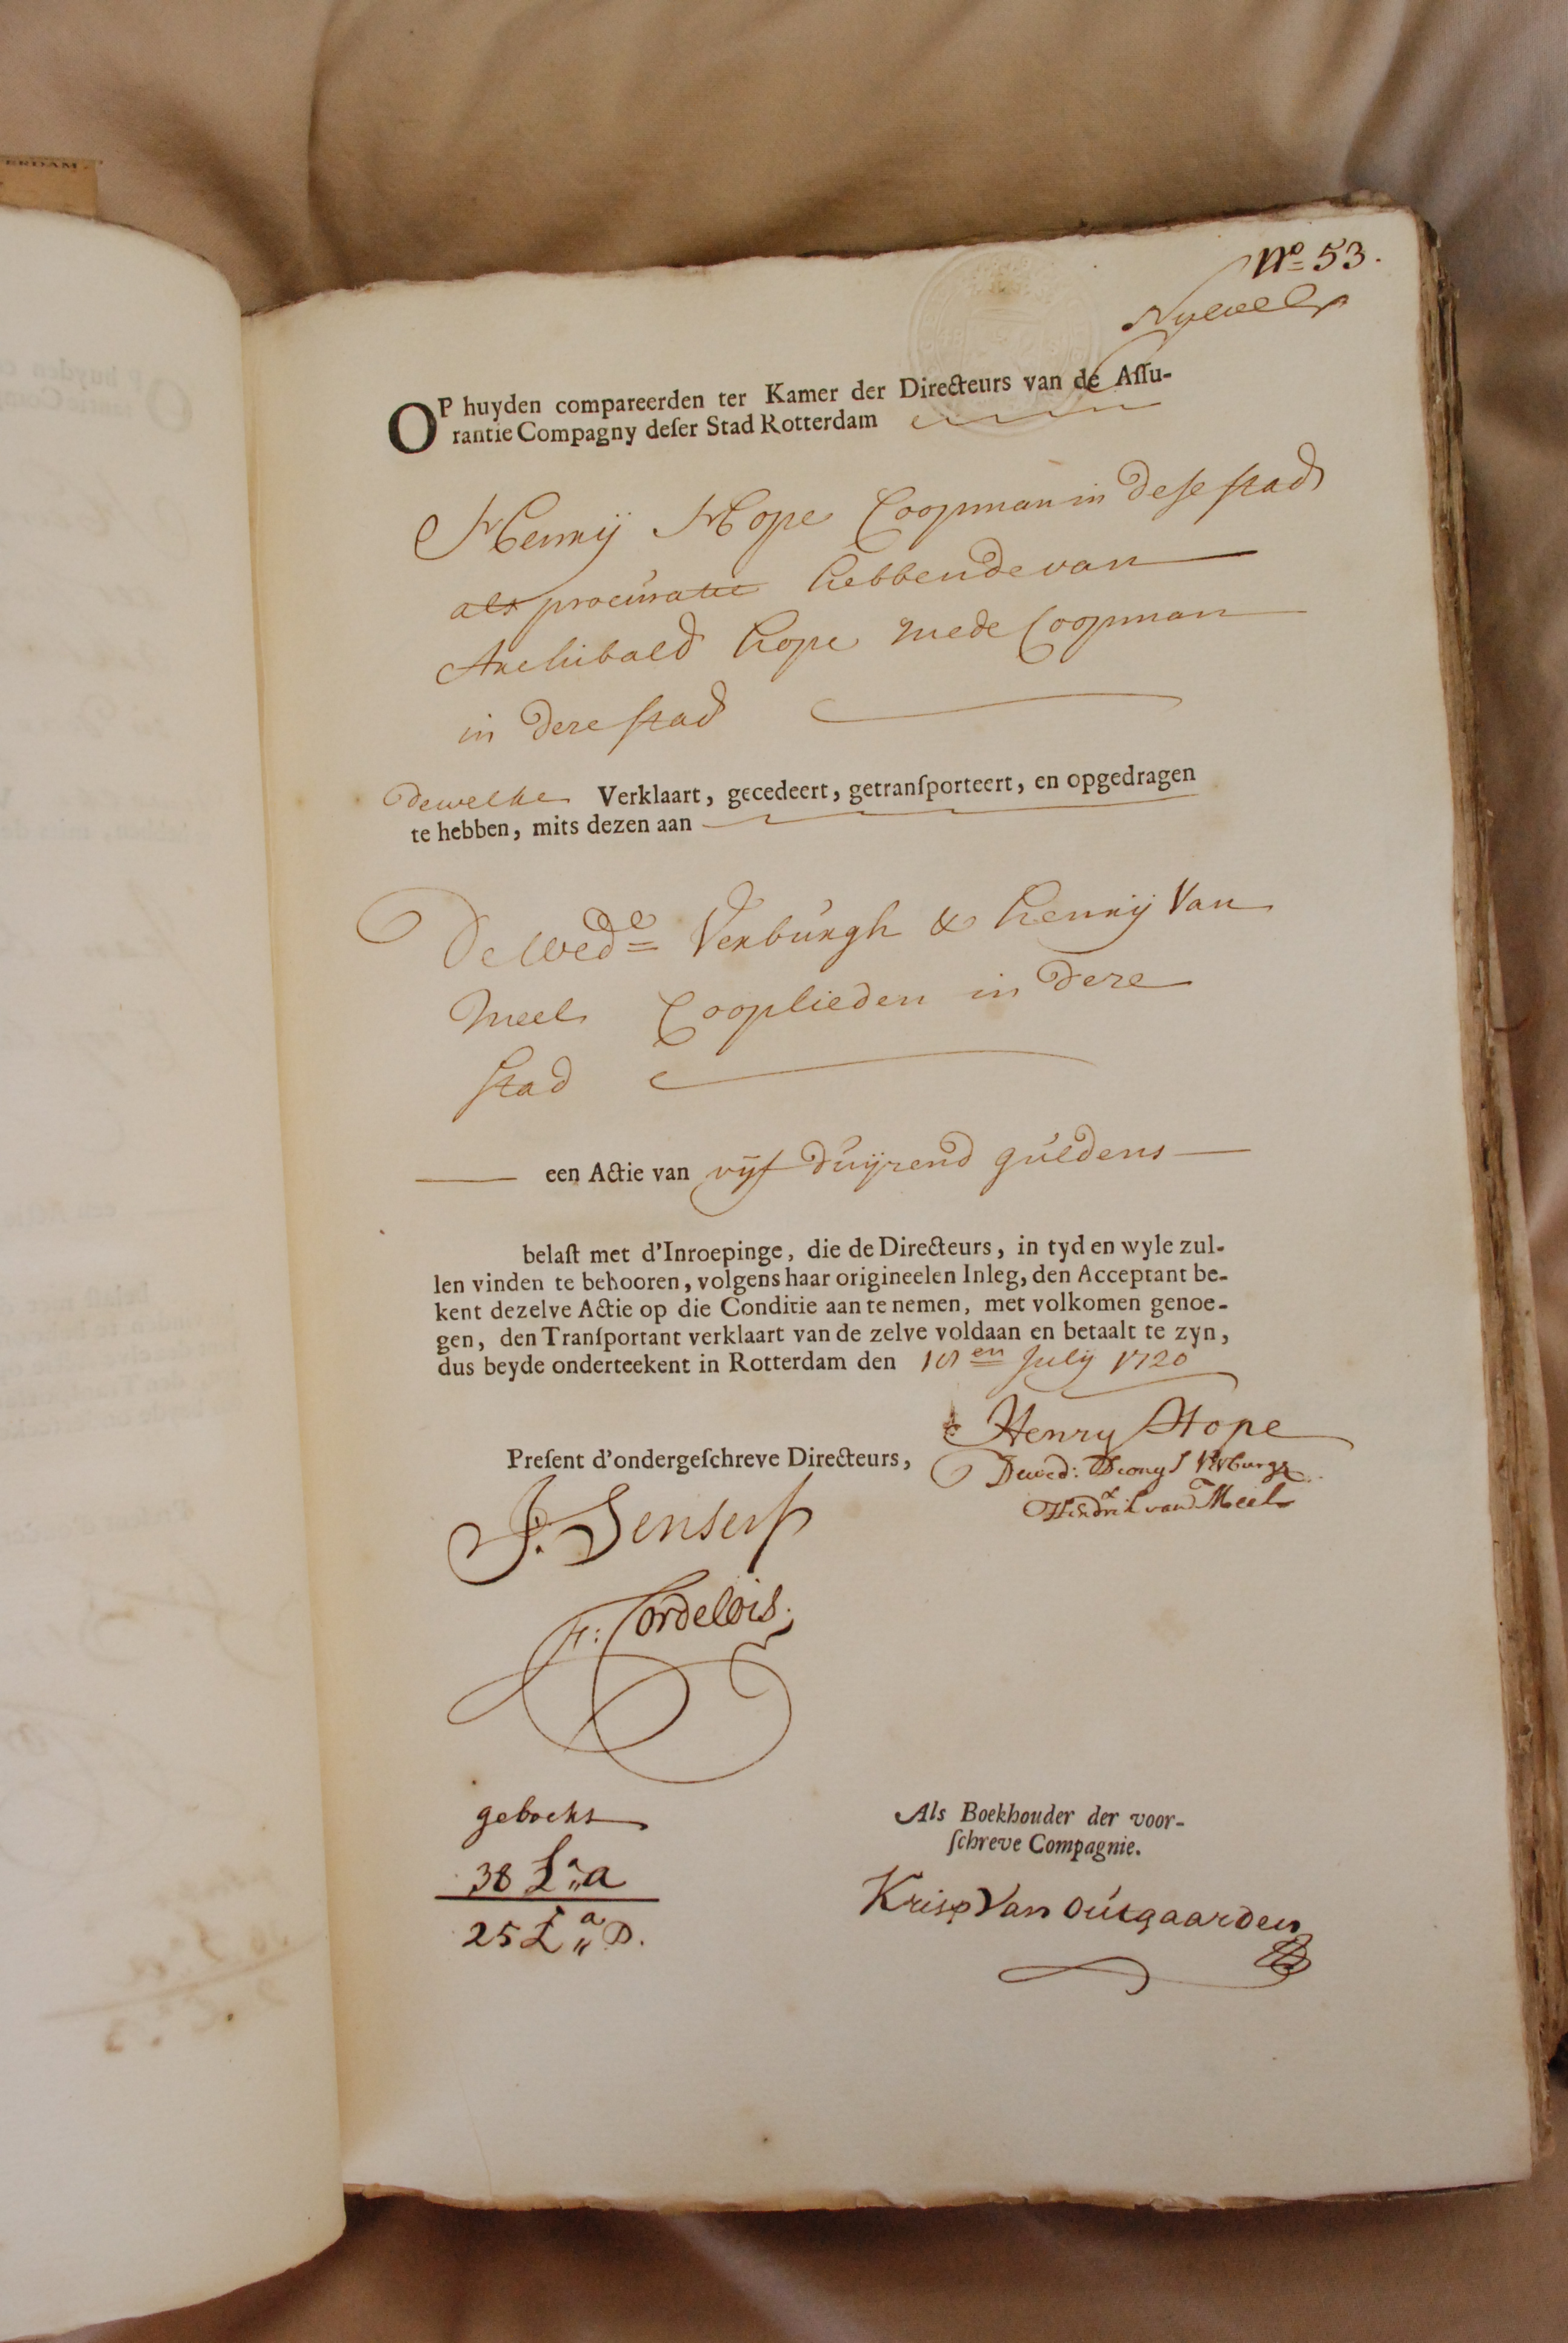 ERDAM
Nº 53.
OP huyden compareerden ter Kamer der Directeurs van de Aſſu-
rantie Compagny deſer Stad Rotterdam
Henrij Hope Coopman in deſe ſtad
als procuratie hebbende van
Archibald hope mede Coopman
in deze ſtad
dewelke Verklaart, gecedeert, getranſporteert, en opgedragen
te hebben, mits dezen aan
De Wedᵉ Verburgh & henrij Van
Meel Cooplieden in deze
ſtad
een Actie van vijf duijzend guldens
belaſt met d'Inroepinge, die de Directeurs, in tyd en wyle zul-
len vinden te behooren, volgens haar origineelen Inleg, den Acceptant be-
kent dezelve Actie op die Conditie aan te nemen, met volkomen genoe-
gen, den Tranſportant verklaart van de zelve voldaan en betaalt te zyn,
dus beyde onderteekent in Rotterdam den July 1720
Henry Hope
Preſent d'ondergeſchreve Directeurs,
Dewed: Verburgh
Hendrik van Meel
J. Senserf
F: Cordelois.
geboekt
38 Lᵃ a
25 Lᵃ D.
Als Boekhouder der voor-
ſchreve Compagnie.
Krisp Van Outgaarden